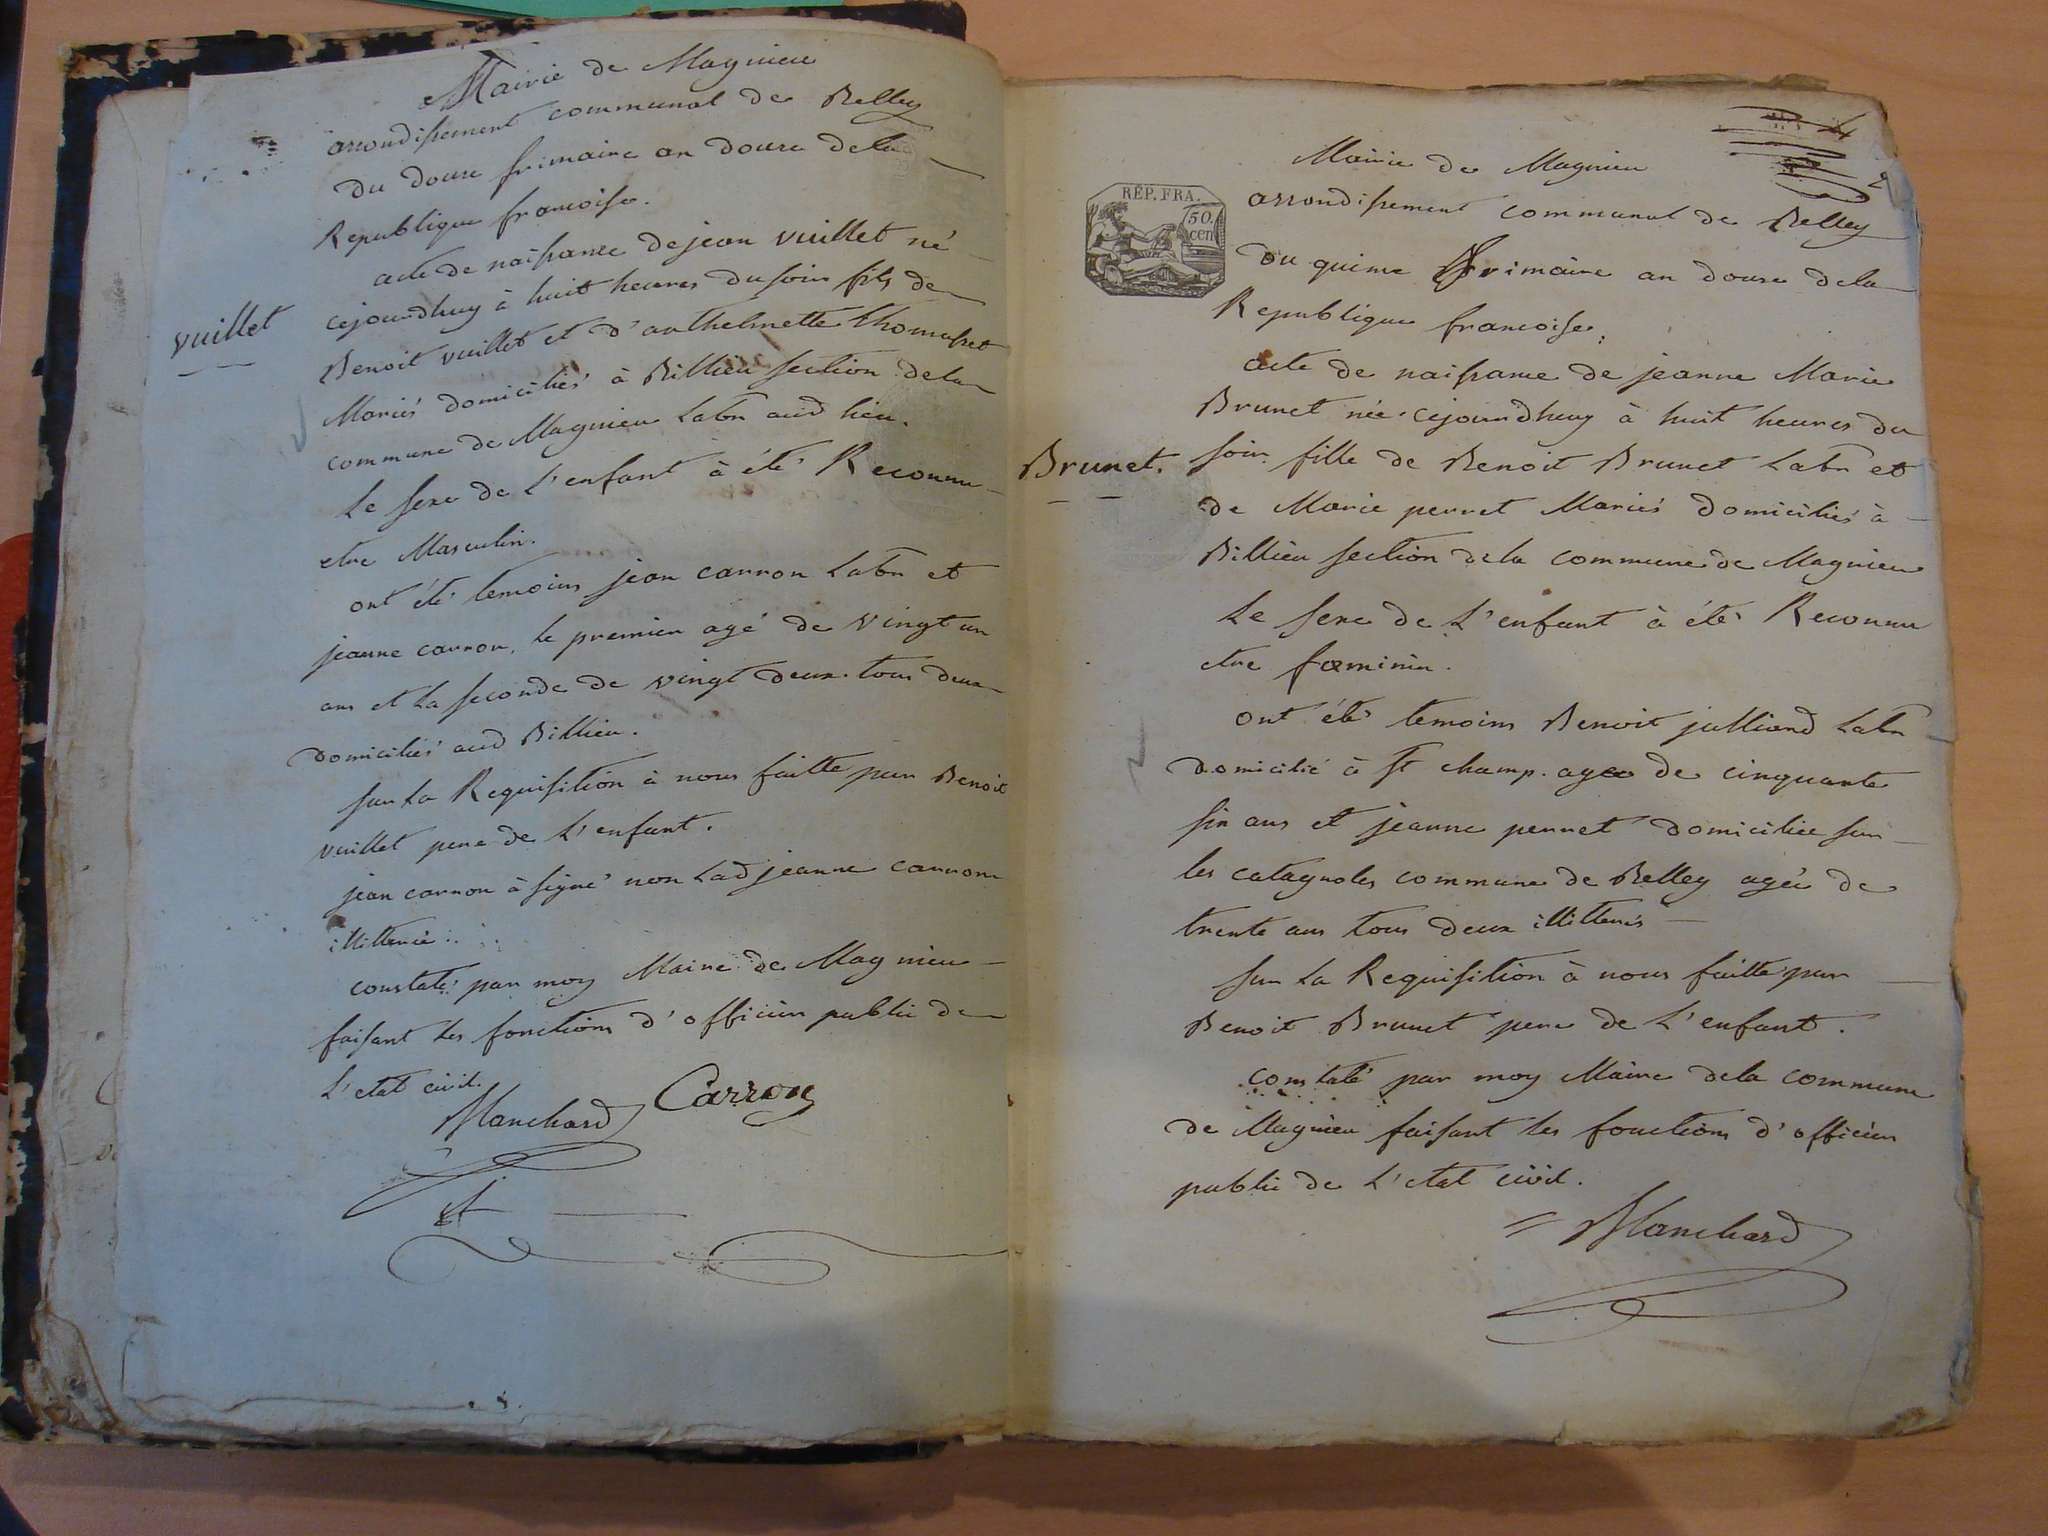 Mairie de Magnieu
arrondissement communal de Belley
Du douze frimaire an douze dela
Republique francoise.
acte de naissance de jean vuillet né
cejourdhuy à huit heures du soir fils de
Benoit vuillet et d'anthelmette thomasset
Mariés domiciliés à Billieu section dela
commune de Magnieu Labr aud lieu.
Le sexe de L'enfant à été Reconnu
etre Masculin.
ont été temoins jean carron Labr et
jeanne carron, le premier agé de vingt un
ans et La seconde de vingt deux tous deux
domiciliés aud Billieu.
sur La Requisition à nous faitte par Benoit
vuillet pere de L'enfant.
jean carron à signé non Lad jeanne carron
illitterée.
constaté par moy Maire de Magnieu
faisant Les fonctions d'officier public de
L'etat civil.
Blanchard Carron
vuillet
Mairie de Magnieu
RÉP. FRA.
50
cen
arrondissement communal de Belley
Du quinze frimaire an douze dela
Republique francoise.
acte de naissance de jeanne Marie
Brunet née cejourdhuy à huit heures du
Brunet.
soir fille de Benoit Brunet Labr et
de Marie perret Mariés domiciliés à
Billieu section dela commune de Magnieu
Le sexe de L'enfant à été Reconnu
etre fœminin.
ont été temoins Benoit julliand Labr
domicilié à St champ. agé de cinquante
six ans et jeanne perret domiciliée sur
les catagnoles commune de Belley agée de
trente ans tous deux illitterés
sur La Requisition à nous faitte par
Benoit Brunet pere de L'enfant.
constaté par moy Maire dela commune
de Magnieu faisant Les fonctions d'officier
public de L'etat civil.
Blanchard